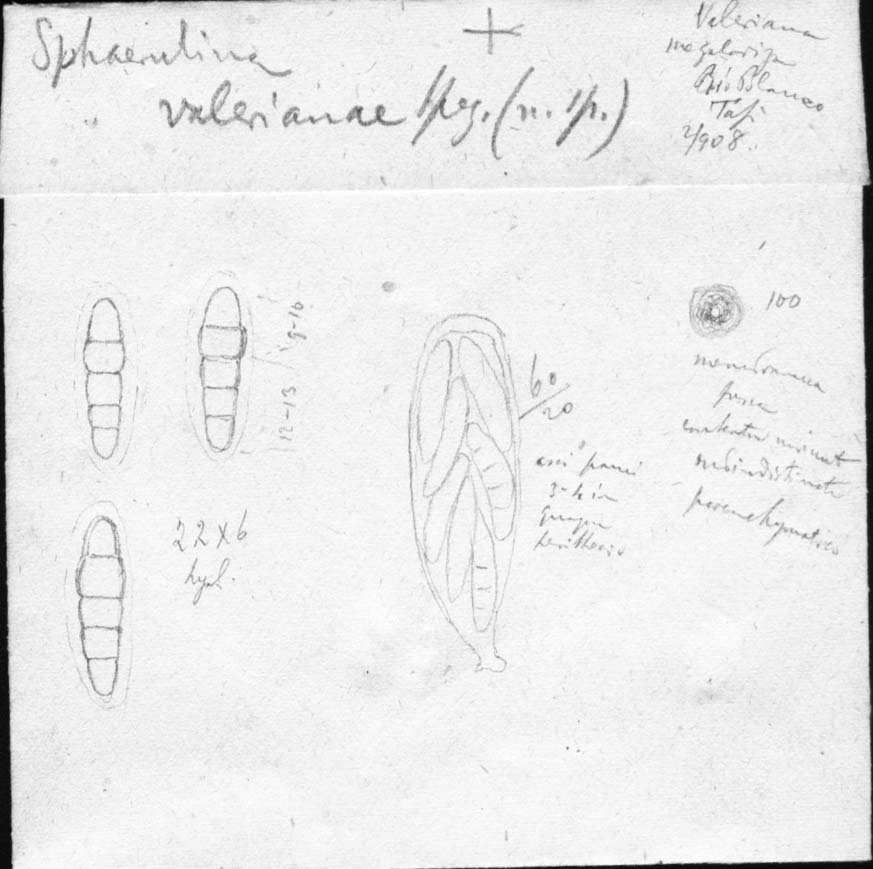 Sphaerulina
valerianae Speg. (n. sp.)
Valeriana
megaloriza
Río Blanco
Tafi
2/908.
9-10
12-13
22 x 6
hyal.
60/20
asci pauci
3-4 in
quoque
perithecio
100
membranacea
fusca
contextu minute
subindistincte
parenchymatico